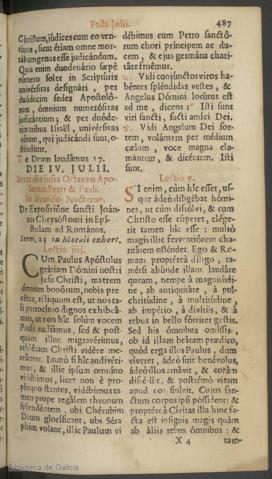 Festa Julii.
487
Christum, judices cum eo ven-
turos, sicut etiam omne mor-
talium genus esse judicandum.
Quia enim duodenário sæpè
número solet in Scriptúris
univérsitas designári, per
duódecim sedes Apostoló-
rum, ómnium numerósitas
judicántium; & per duóde-
cim tribus Israël, univérsitas
eórum, qui judicándi sunt, o-
sténditur.
Te Deum laudámus 17.
DIE IV. JULII.
Sexta die infra Octávam Apo-
stolórum Petri & Pauli.
In secúndo Noctúrno.
De Expositióne sancti Joán-
nis Chrysóstomi in Epí-
stolam ad Romános.
Serm. 23 in morali exhort.
Lectio iiij.
CUm Paulus Apóstolus
grátiam Dómini nostri
Jesu Christi, matrem
ómnium bonórum, nobis pre-
cétur, réliquum est, ut nos ta-
li patrocínio dignos exhibeá-
mus, ut non hîc solùm vocem
Pauli audiámus, sed & post-
quam illuc migravérimus,
athlétam Christi vidére me-
reámur. Immò si hîc audiéri-
mus, & illic ipsum omníno
vidébimus, licet non è pro-
pínquo stantes, vidébimus ta-
men prope regálem thronum
splendéntem, ubi Chérubim
Deum gloríficant, ubi Séra-
phim volant, illic Paulum vi
débimus cum Petro sanctó-
rum chori príncipem ac du-
cem, & ejus germána chari-
táte fruémur.
Vidi conjúnctos viros ha-
béntes spléndidas vestes, &
Angelus Dómini locútus est
ad me, dicens: * Isti sunt
viri sancti, facti amíci Dei.
V. Vidi Angelum Dei for-
tem, volántem per médium
cælum, voce magna cla-
mántem, & dicéntem. Isti
sunt.
Lectio v.
SI enim, cùm hîc esset, us-
que ádeò diligébat hómi-
nes, ut cùm dissólvi, & cum
Christo esse cúperet, elége-
rit tamen hîc esse: multò
magis illic fervéntiorem cha-
ritátem osténdet. Ego & Ro-
mam proptéreà díligo, ta-
métsi áliunde illam laudáre
queam, nempè à magnitúdi-
ne, ab antiquitáte, à pul-
chritúdine, à multitúdine,
ab império, à divítiis, & à
rebus in bello fórtiter gestis.
Sed his ómnibus omíssis,
ob id illam beátam prædico,
quòd erga illos Paulus, dum
víveret, ádeò fuit benévolus,
ádeò illos amávit, & coràm
disséruit, & postrémò vitam
apud eos finívit. Cujus san-
ctum corpus ipsi póssident: &
proptéreà Cívitas illa hinc fa-
cta est insígnis magis quàm
ab áliis rebus ómnibus: &
X 4
tam-
Biblioteca de Galicia